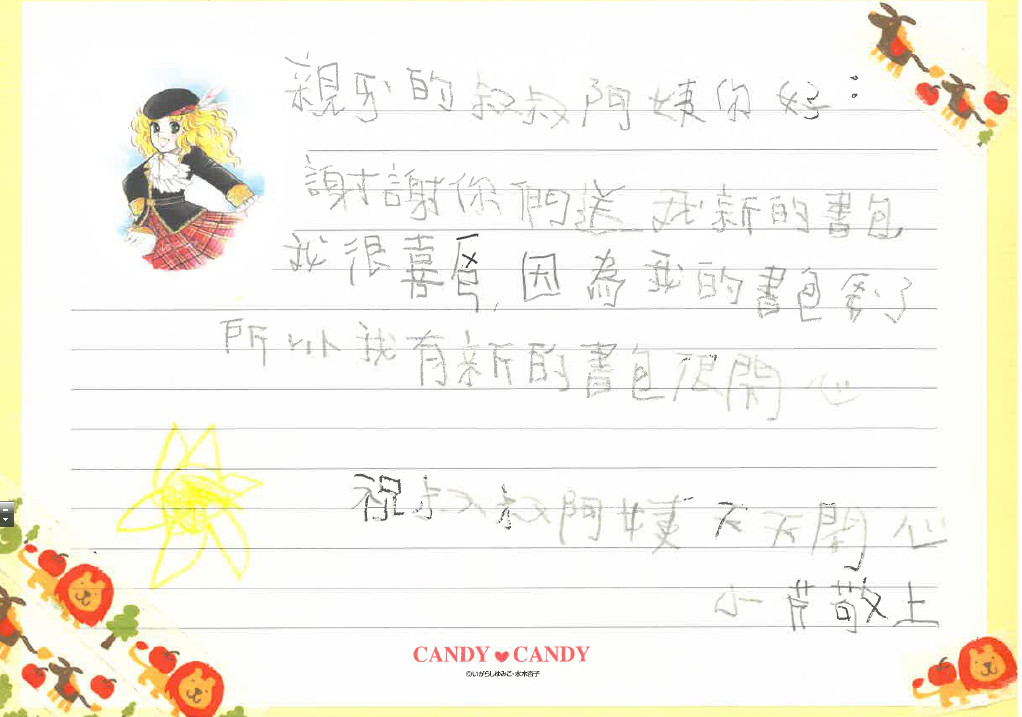 親 的叔叔阿姨你好：
謝謝你們送我新的書包
我很喜 ，因為我的書包 了
所以我有新的書包很開心
祝叔叔阿姨天天開心
小芹敬上
CANDY CANDY
©いがらしゆみこ・水木杏子